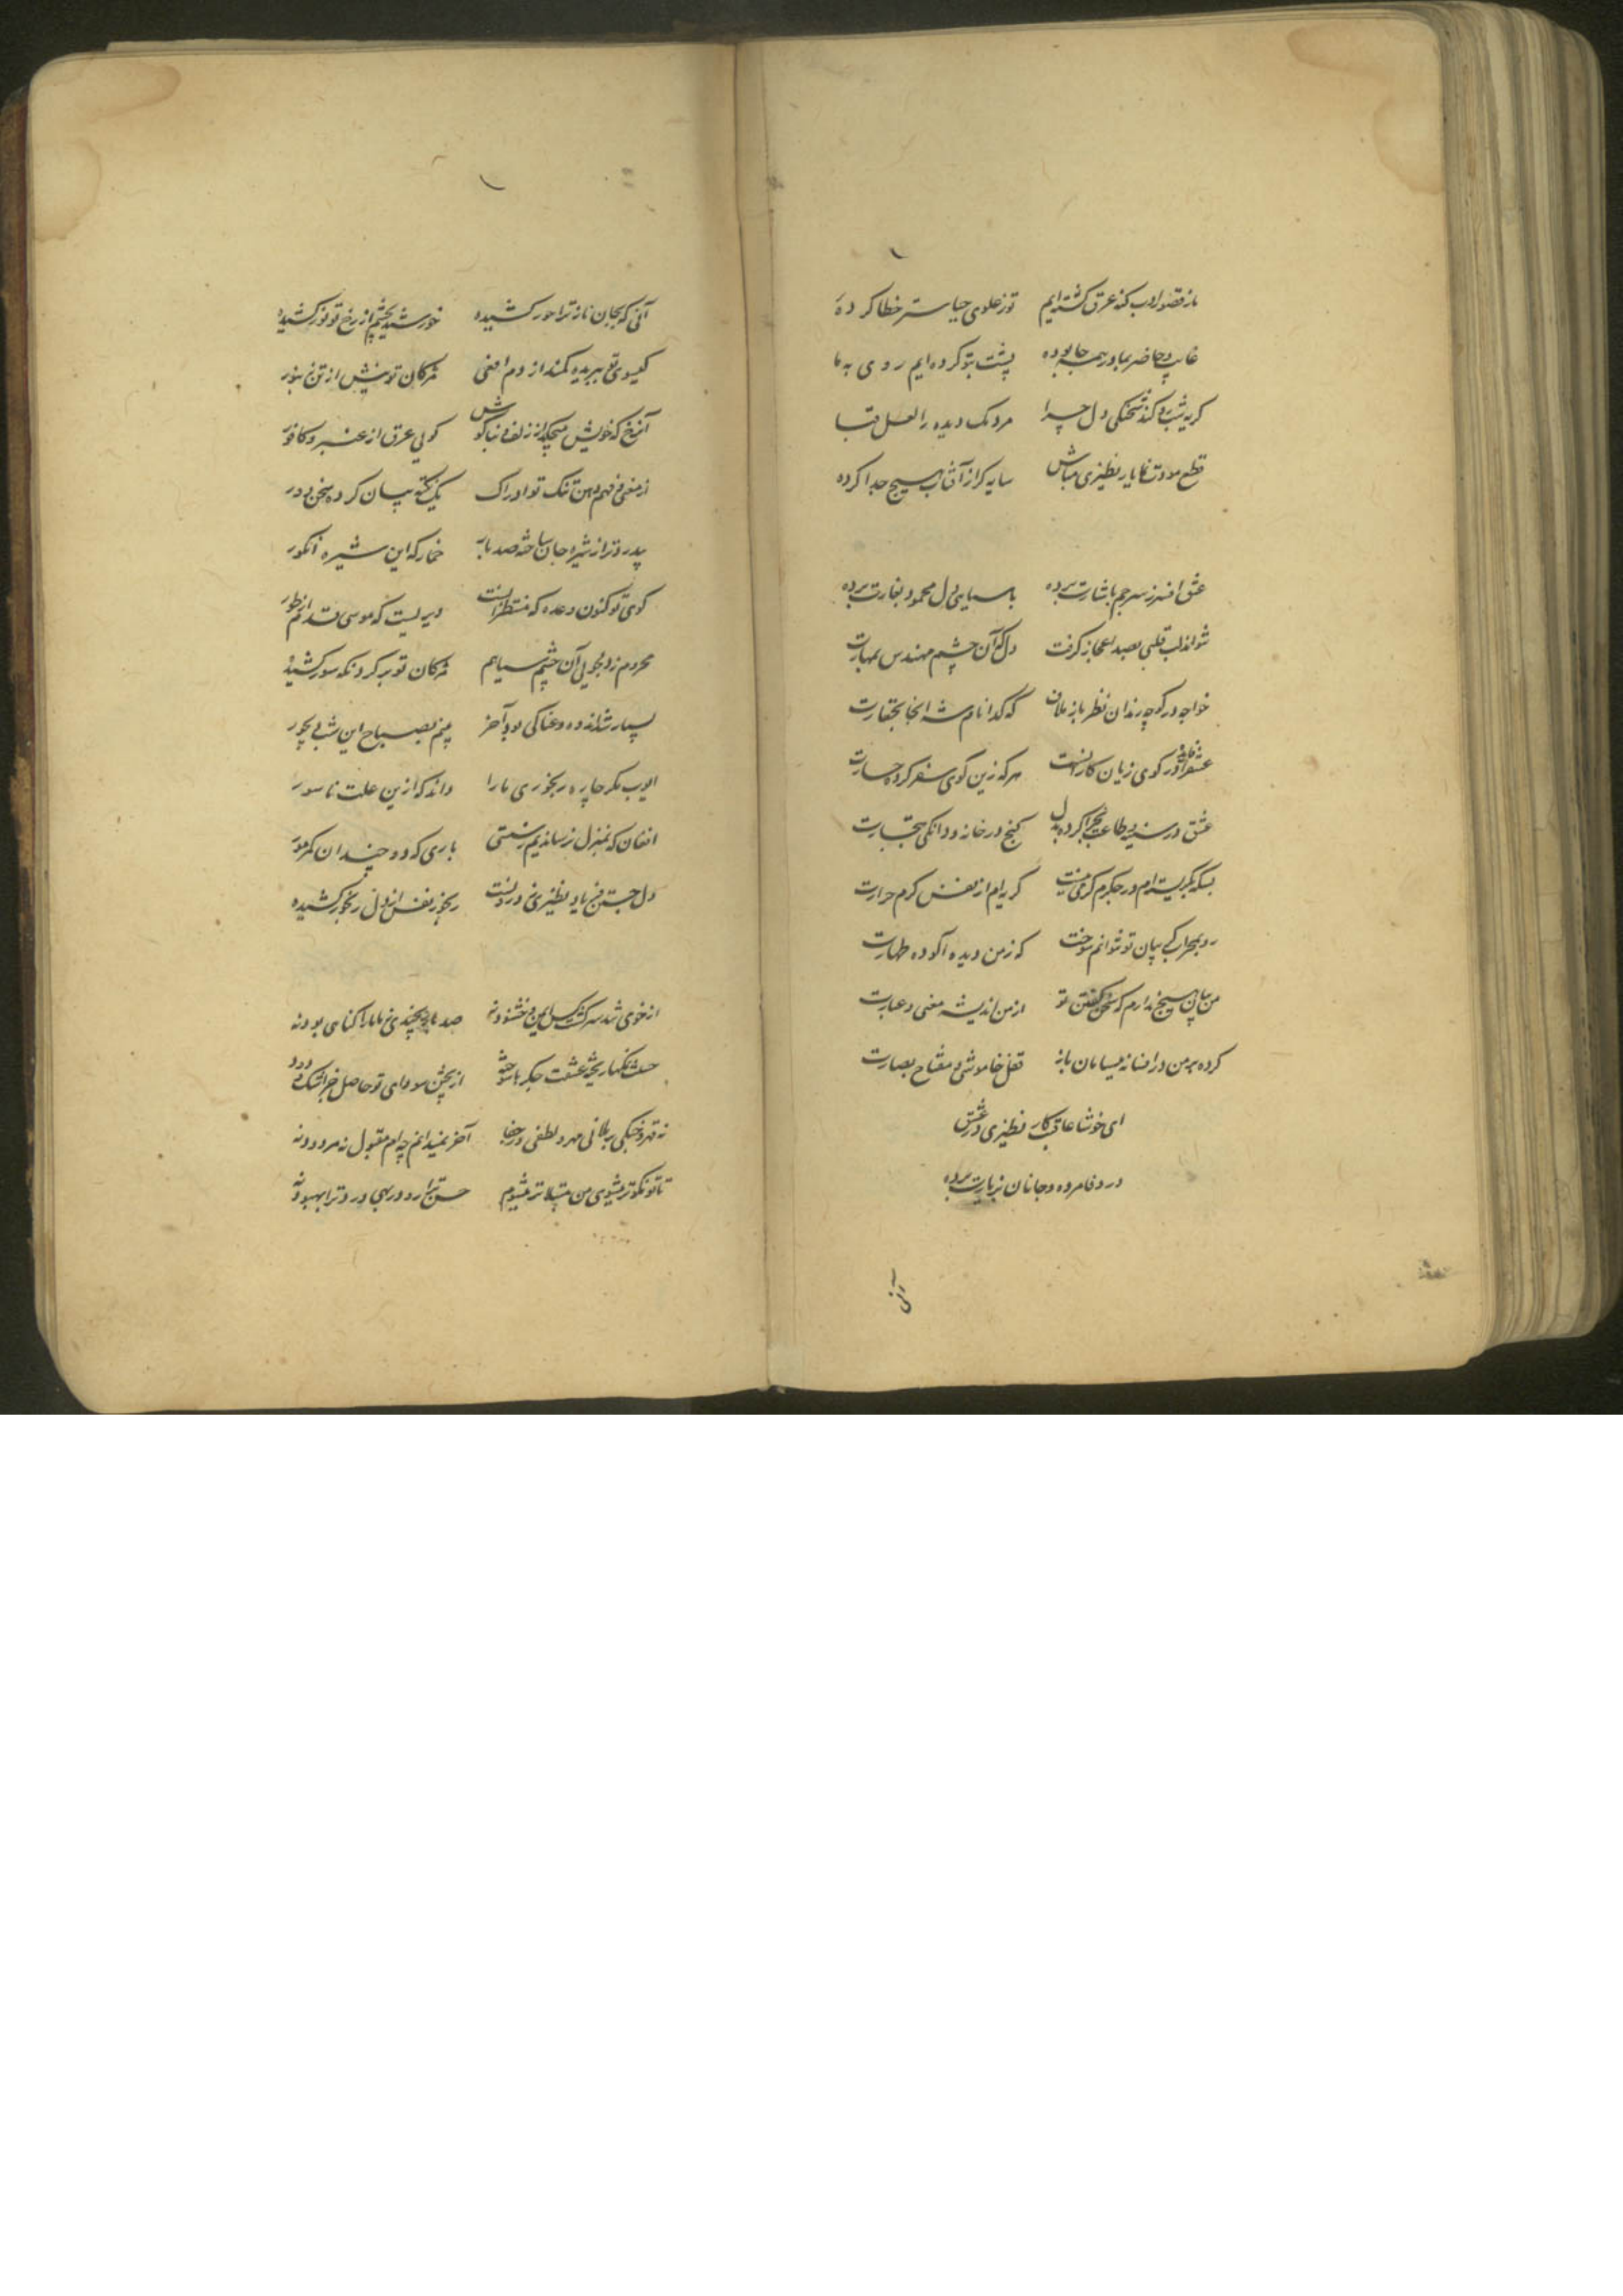 ما ز قصور ادب کند عرق گشته‌ایم تو ز علوی حیا ستر خطا کرده
غایب و حاضر بما در همه جا بوده پشت بتو کرده‌ایم روی به ما
گریه شب رو کند دل چرا مردمک دیده را لعل قبا
قطع مودت نظیری مباش سایه کز آفتاب هیچ جدا کرده
عشق افسر ز سر جم باشارت برده با سپاهی دل محمود بغارت برده
لب قلبی بصد اعجاز گرفت دل آن چشم مهندس بمهارت
خواجه در کوچه رندان نظر باز ملاف که گدا نام شه اینجا بحقارت
در کوی زیان کار هر که زین کوی سفر کرده خسارت
عشق در سینه و طاعت کرده بدل گنج در خانه و دانگی بتجارت
بسکه بگریسته‌ام در جگرم گرمی نیست گریه‌ام از نفس گرم حرارت
رو بمحراب توانم سوخت که ز من دیده آلوده طهارت
من بیان هیچ ندارم گفتن تو از من اندیشه معنی و عبارت
کرده بر من در افسانه باز قفل خاموشی و مفتاح بصارت
ای خوشا عاقبت کار نظیری در عشق
درد و فا مرده و جانان بزیارت برده
آنی
آنی که بجان ناز ترا حور کشیده خورشید بچشم از رخ تو نور کشیده
گیسوی تو ببریده کمند از دم افعی مژگان تو نیش از تن زنبور
آن رخ که خویش میچکد از زلف و بناگوش گویی عرق از عنبر و کافور
از معنی فهم دهن تنگ تو ادراک یک نکته بیان کرده سخن دور
پدرود تر از شیره جان ساخته صد بار خمار که این شیره انگور
گوی تو کنون وعده که منتظرانست دیریست که موسی قدم از طور
محروم ز دلجویی آن چشم سیاهم مژگان تو بر گرد نگه سور کشیده
بسیار شد اندوه و غناکی بود آخر بینم بصباح این شب دیجور
ایوب مگر چاره رنجوری ما را داند که ازین علت ناسور
افغان که بمنزل نرساندیم ز سستی باری که دو چندان کمر مور
دل جستن فریاد نظیری نه ز دردست رنجور نفس از دل رنجور کشیده
از خوی تند سرکشت کس ایمن و خشنود نه صد بار و ما را گناهی بود نه
حسنت نمکها ریخته عشقت جگرها سوخته از پختن سودای تو حاصل جز اشک و دود
نه قهر و جنگی بر ملا نی مهر و لطفی در خفا آخر نمیدانم چه‌ام مقبول نه مردود نه
تا تو نکوتر میشوی من مبتلاتر میشوم حسن ترا رو در بهی درد ترا بهبود نه